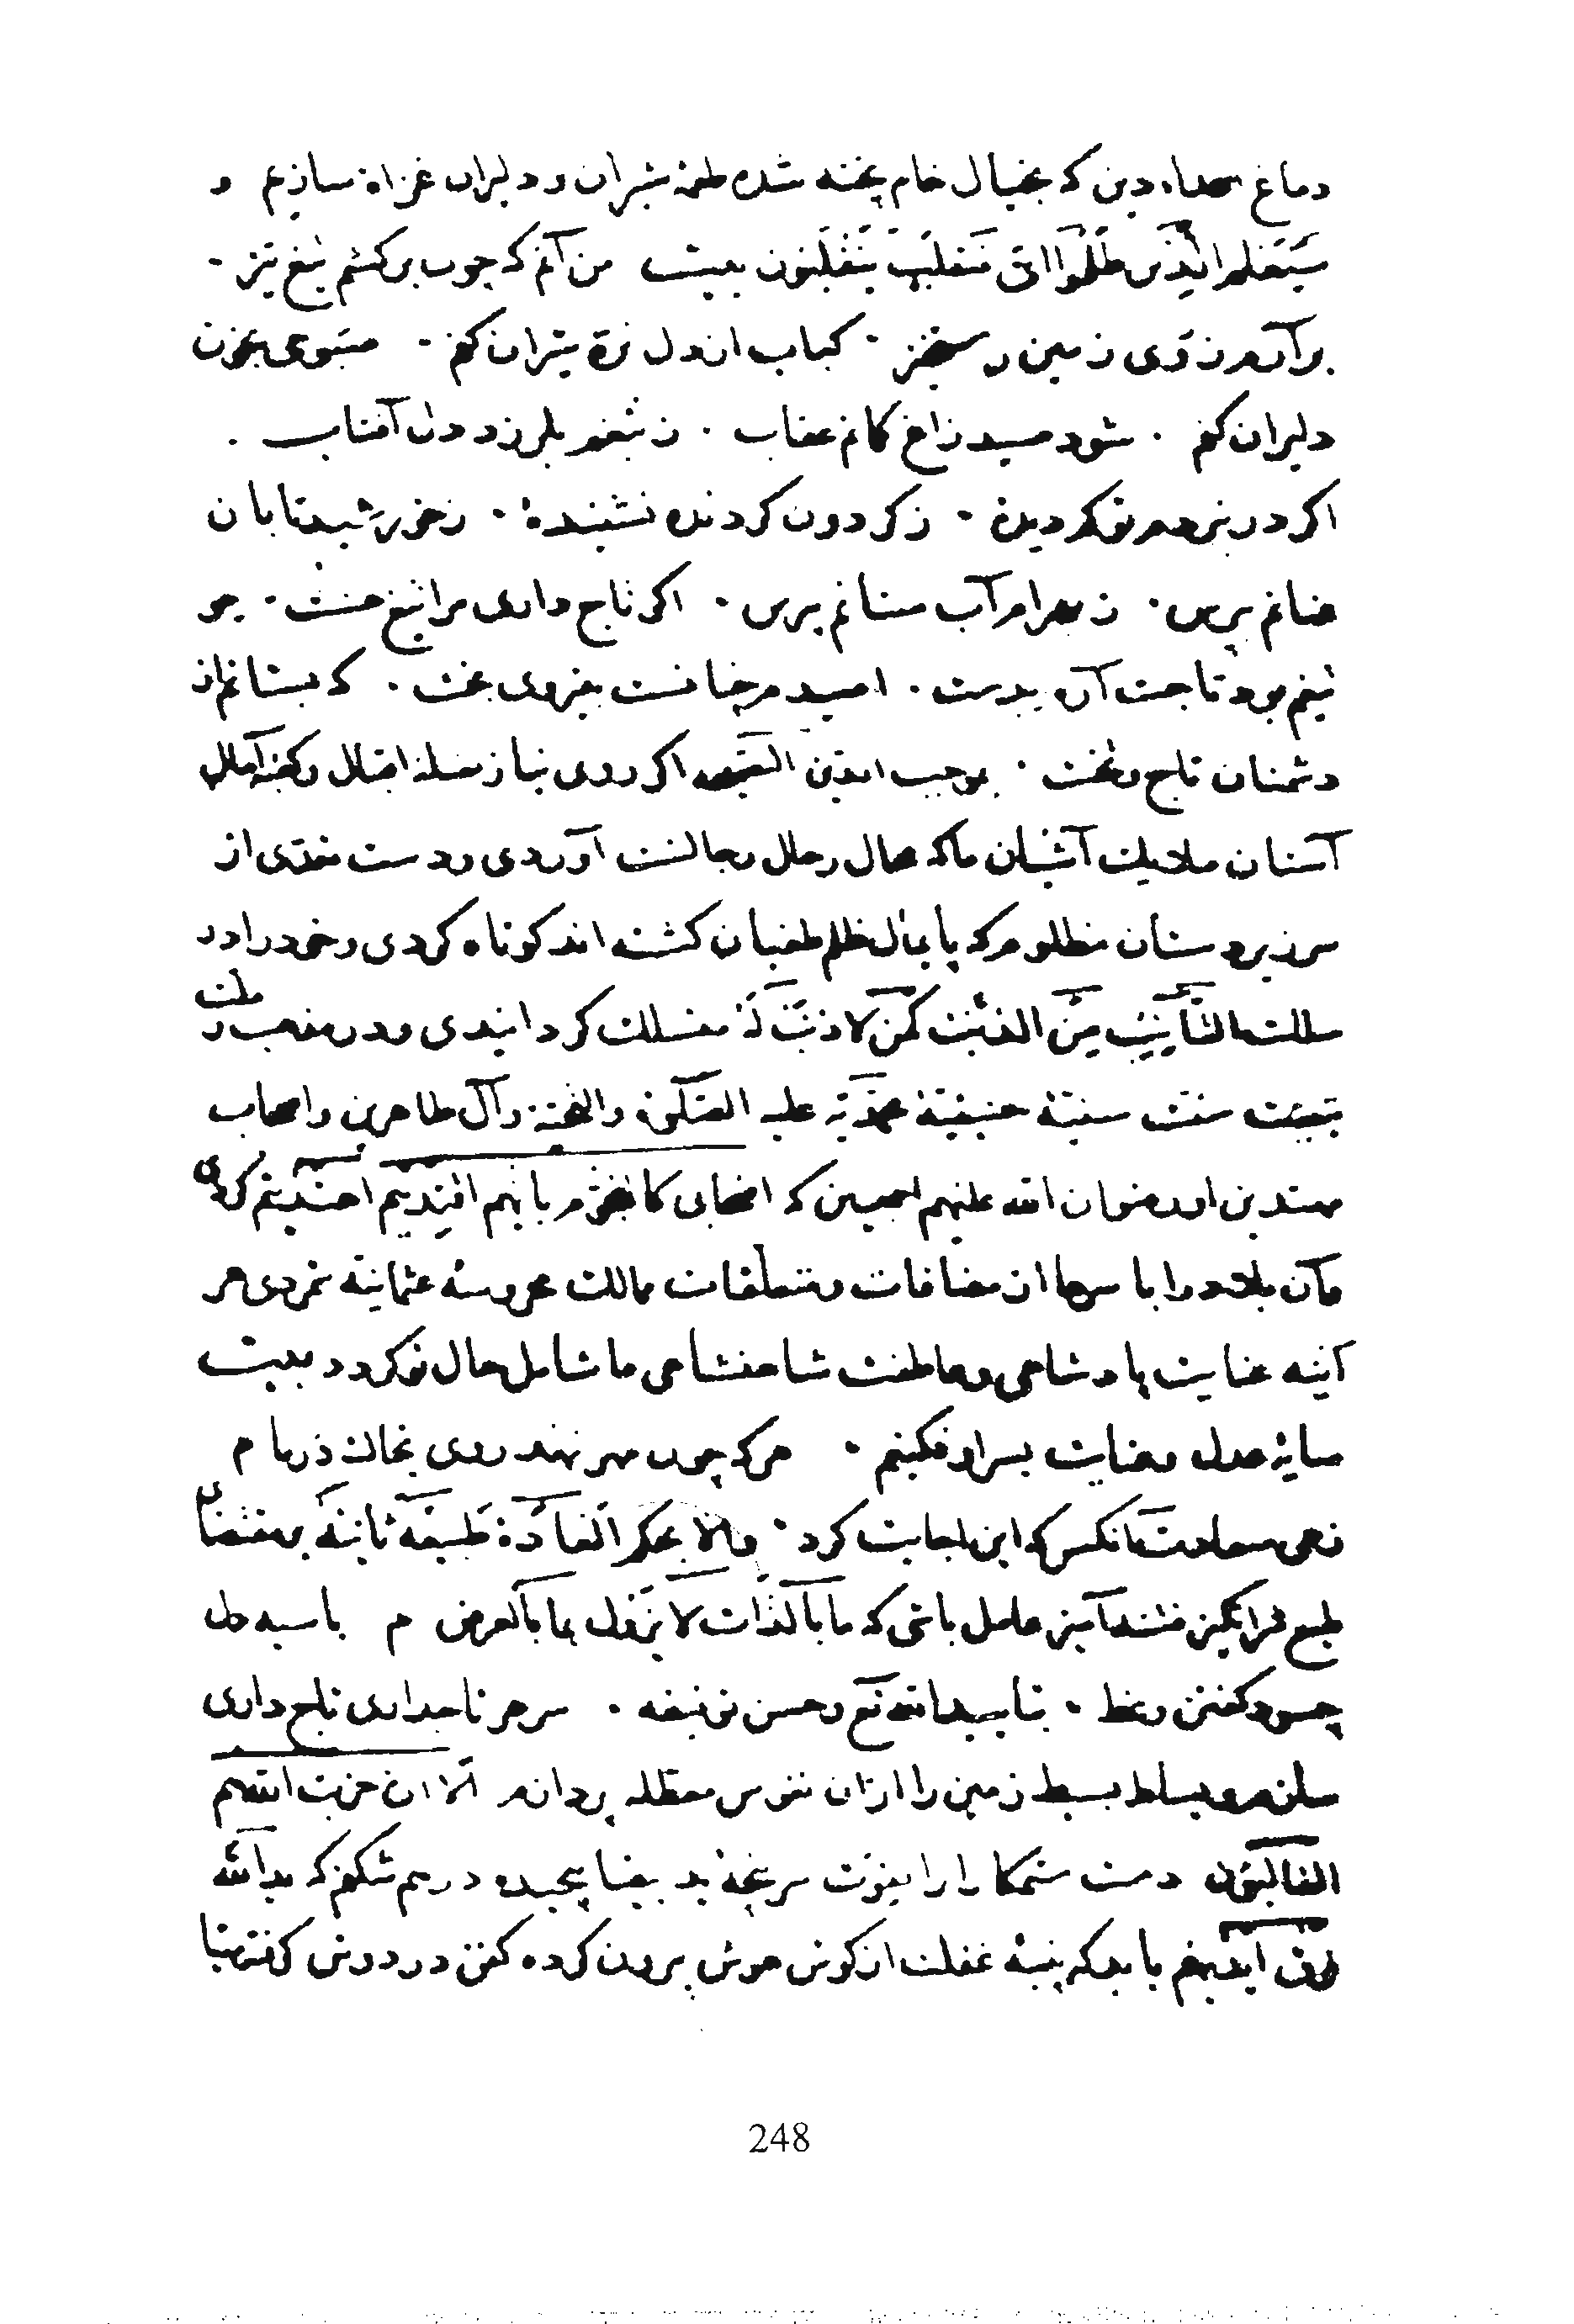 دماغ اعداء دین که بخیال خام پخته شده طعمۀ شیران و دلیران غزاة سازیم و
سَیَعْلَمُ الَّذینَ ظَلَمُوا اَیَّ مُنقَلَبٍ یَنقَلِبُون بیت من آنم که چون برکشم تیغ تیز ·
برآرم ز روی زمین رستخیز · کباب از دل نرۀ شیران کنم · صبوحی بخون
دلیران کنم · شود صید زاغ کمانم عقاب · ز تیغم بلرزد دل آفتاب ·
اکر در نبردم تو کم دیدۀ · ز کردون کردنده نشنیدۀ · ز خورشید تابان
عنانم بپرس · ز بهرام آب سنانم بپرس · اکر تاج داری مرا تیغ هست · چو
تیغم بود تاجت آرم بدست · امید مرچنانست بنیروی بخت · که بستانم از
دشمنان تاج و تخت · بموجب الدین النصیحه اکر روی نیاز بقبلۀ اقبال و کعبۀ آمال
آستان ملایک آشیان ما که محال رحال رجالست آوردی و دست تعدی از
سر زیردستان مظلوم که پایمال ظلم و طغیان کشته اند کوتاه کردی و خود را در
سلک التَّائِبُ مِنَ الذَّنبِ کَمَن لا ذَنبَ لَهُ منسلک کردانیدی و در مذهب و ملت
تبعیت سنت سنیۀ حنیفیۀ محمدیه علیه الصلوة والتحیة و آل طاهرین و اصحاب
مهتدین او رضوان الله علیهم اجمعین که اصحابی کالنجوم بایهم اقتدیتم اهتدیتم کردی
و آن بلاد را با سرها از مضافات و متعلقات ممالک محروسۀ عثمانیه شمردی هر
آینه عنایت پادشاهی و عاطفت شاهنشاهی ما شامل حال تو کردد بیت
سایۀ عدل و عنایت بسر او فکنیم · هرکه چون مهر نهد روی بخاک در ما م
زهی سعادت آنکس که این اجابت کرد · والا بحکم العَادَةُ طَبیعَةٌ ثانِیَةٌ بمقتضای
طبع شرانکیز فتنه آمیز عامل باشی که ما بالذات لا یزول بما بالعرض م با سیه دل
چه سود کفتن وعظ · بتایید الله تع و حسن توفیقه · سر هر تاجداری تاج داری
سازم و بساط بسیط زمین را از آن نفوس معطله پردازم اَلا اِنَّ حِزبَ الله هُم
الغالِبُون دست ستمکار را بقوت سرپنجۀ ید بیضا پیچیده درهم شکنم که یدُ الله
فوق اَیدیهِم باید که پنبۀ غفلت از کوش هوش برون کرده کفن در دوش کفتم تا
248